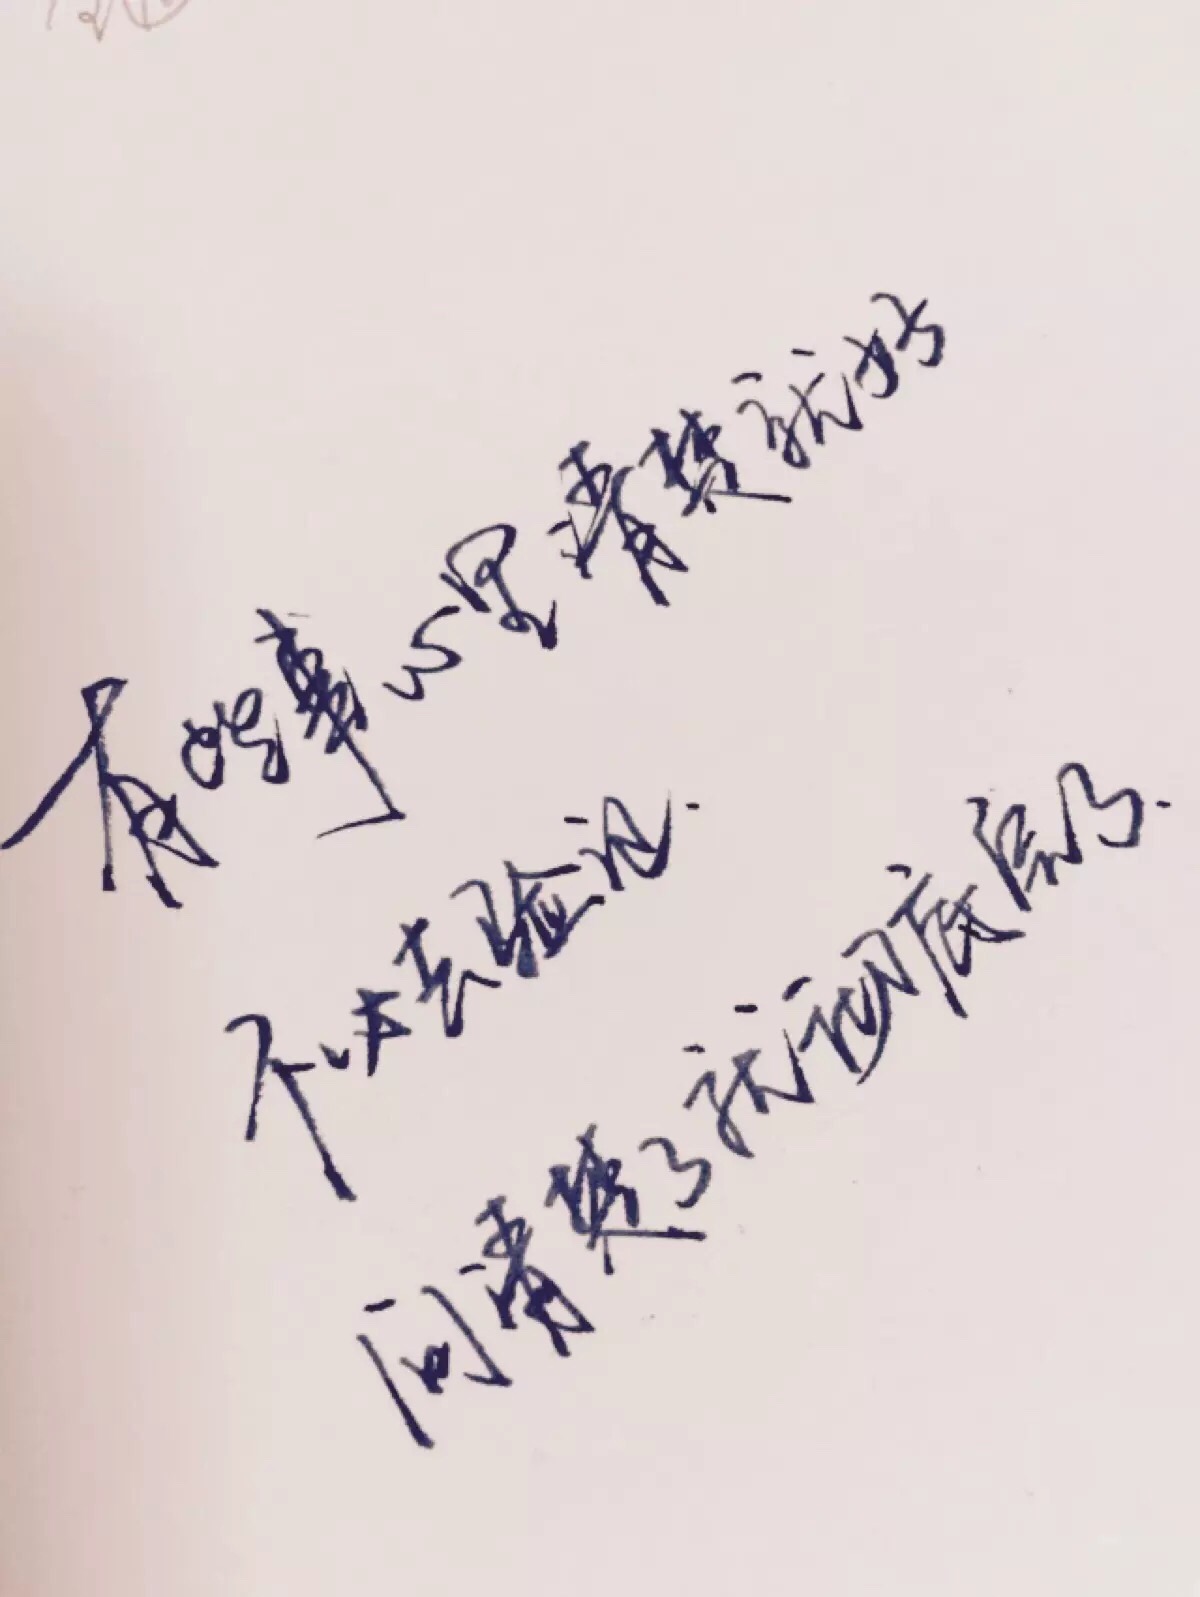 有些事心里清楚就好
不必去验证.
问清楚了就彻底